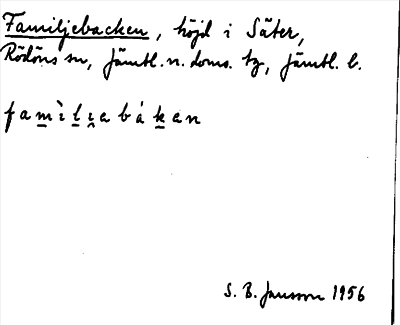 Familjebacken, höjd i Säter,
Rödöns sn, Jämtl. n. doms. tg, Jämtl. l.
fami�lìi̯abákan
S. B. Jansson 1956